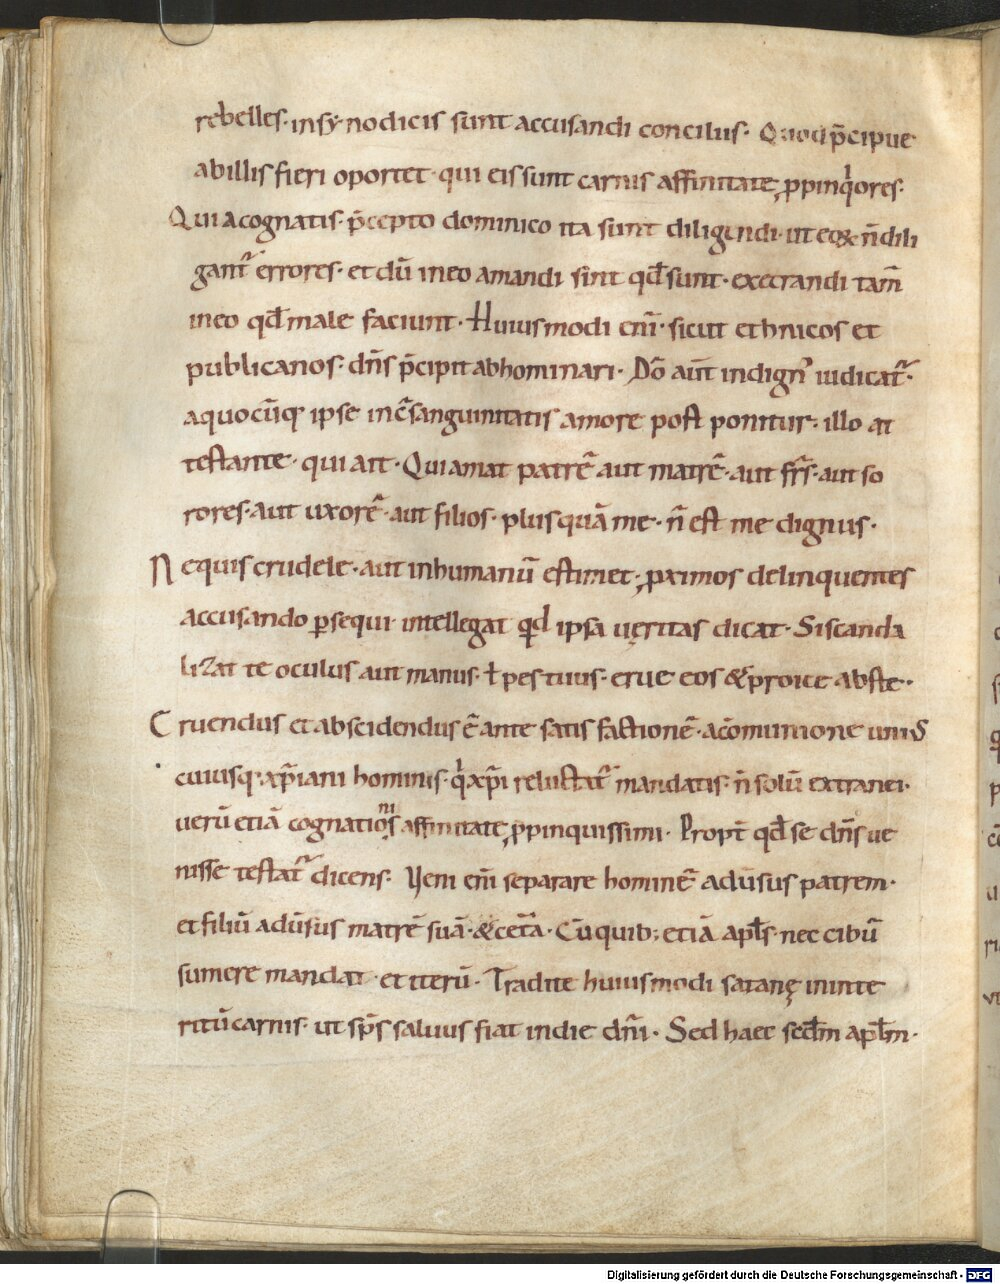 rebelles· insynodicis sunt accusandi conciliis· Quod p̄cipue
abillis fieri oportet· qui eis sunt carnis affinitate ꝓpinqͥores·
Quia cognatis· p̄cepto dominico ita sunt diligendi· ut eoꝝ ñ dili
gant᷑ errores· et dū ineo amandi sint qđ sunt· execrandi tam̄
ineo qđ male faciunt· Huiusmodi eni̅· sicut ethnicos et
publicanos· dn̄s p̄cipit abhominari· Dō aut̄ indign᷒ iudicat᷑·
aquocūq; ipse in c̄sanguinitatis amore post ponitur· illo at
testante· qui ait· Qui amat patrē aut matrē· aut fr̄s· aut so
rores· aut uxorē· aut filios· plus quā me· ñ est me dignus·
Nequis crudele· aut inhumanū estimet· ꝓximos delinquentes
accusando ꝑsequi· intellegat qd ipsa uęritas dicat· Siscanda
lizat te oculus aut manus· ł pes tuus· erue eos & proice abste·
Eruendus et abscidendus ē ante satis factionē· acōmunione unius
cuiusq; xp̄iani hominis· qͥ xp̄i reluctat᷑ mandatis· ñ solū extranei·
uerū etiā cognationis affinitate ꝓpinquissimi· Propt̄ qđ se dn̄s ue
nisse testat᷑ dicens· Veni eni̅ separare hominē adūsus patrem·
et filiū adūsus matrē suā· & cet̄a· Cū quib; etiā apl̄s· nec cibū
sumere mandat· et iterū· Tradite huiusmodi satanę ininte
ritū carnis· ut sp̄s saluus fiat indie dn̄i· Sed haec secđm apl̄m·
Digitalisierung gefördert durch die Deutsche Forschungsgemeinschaft - DFG